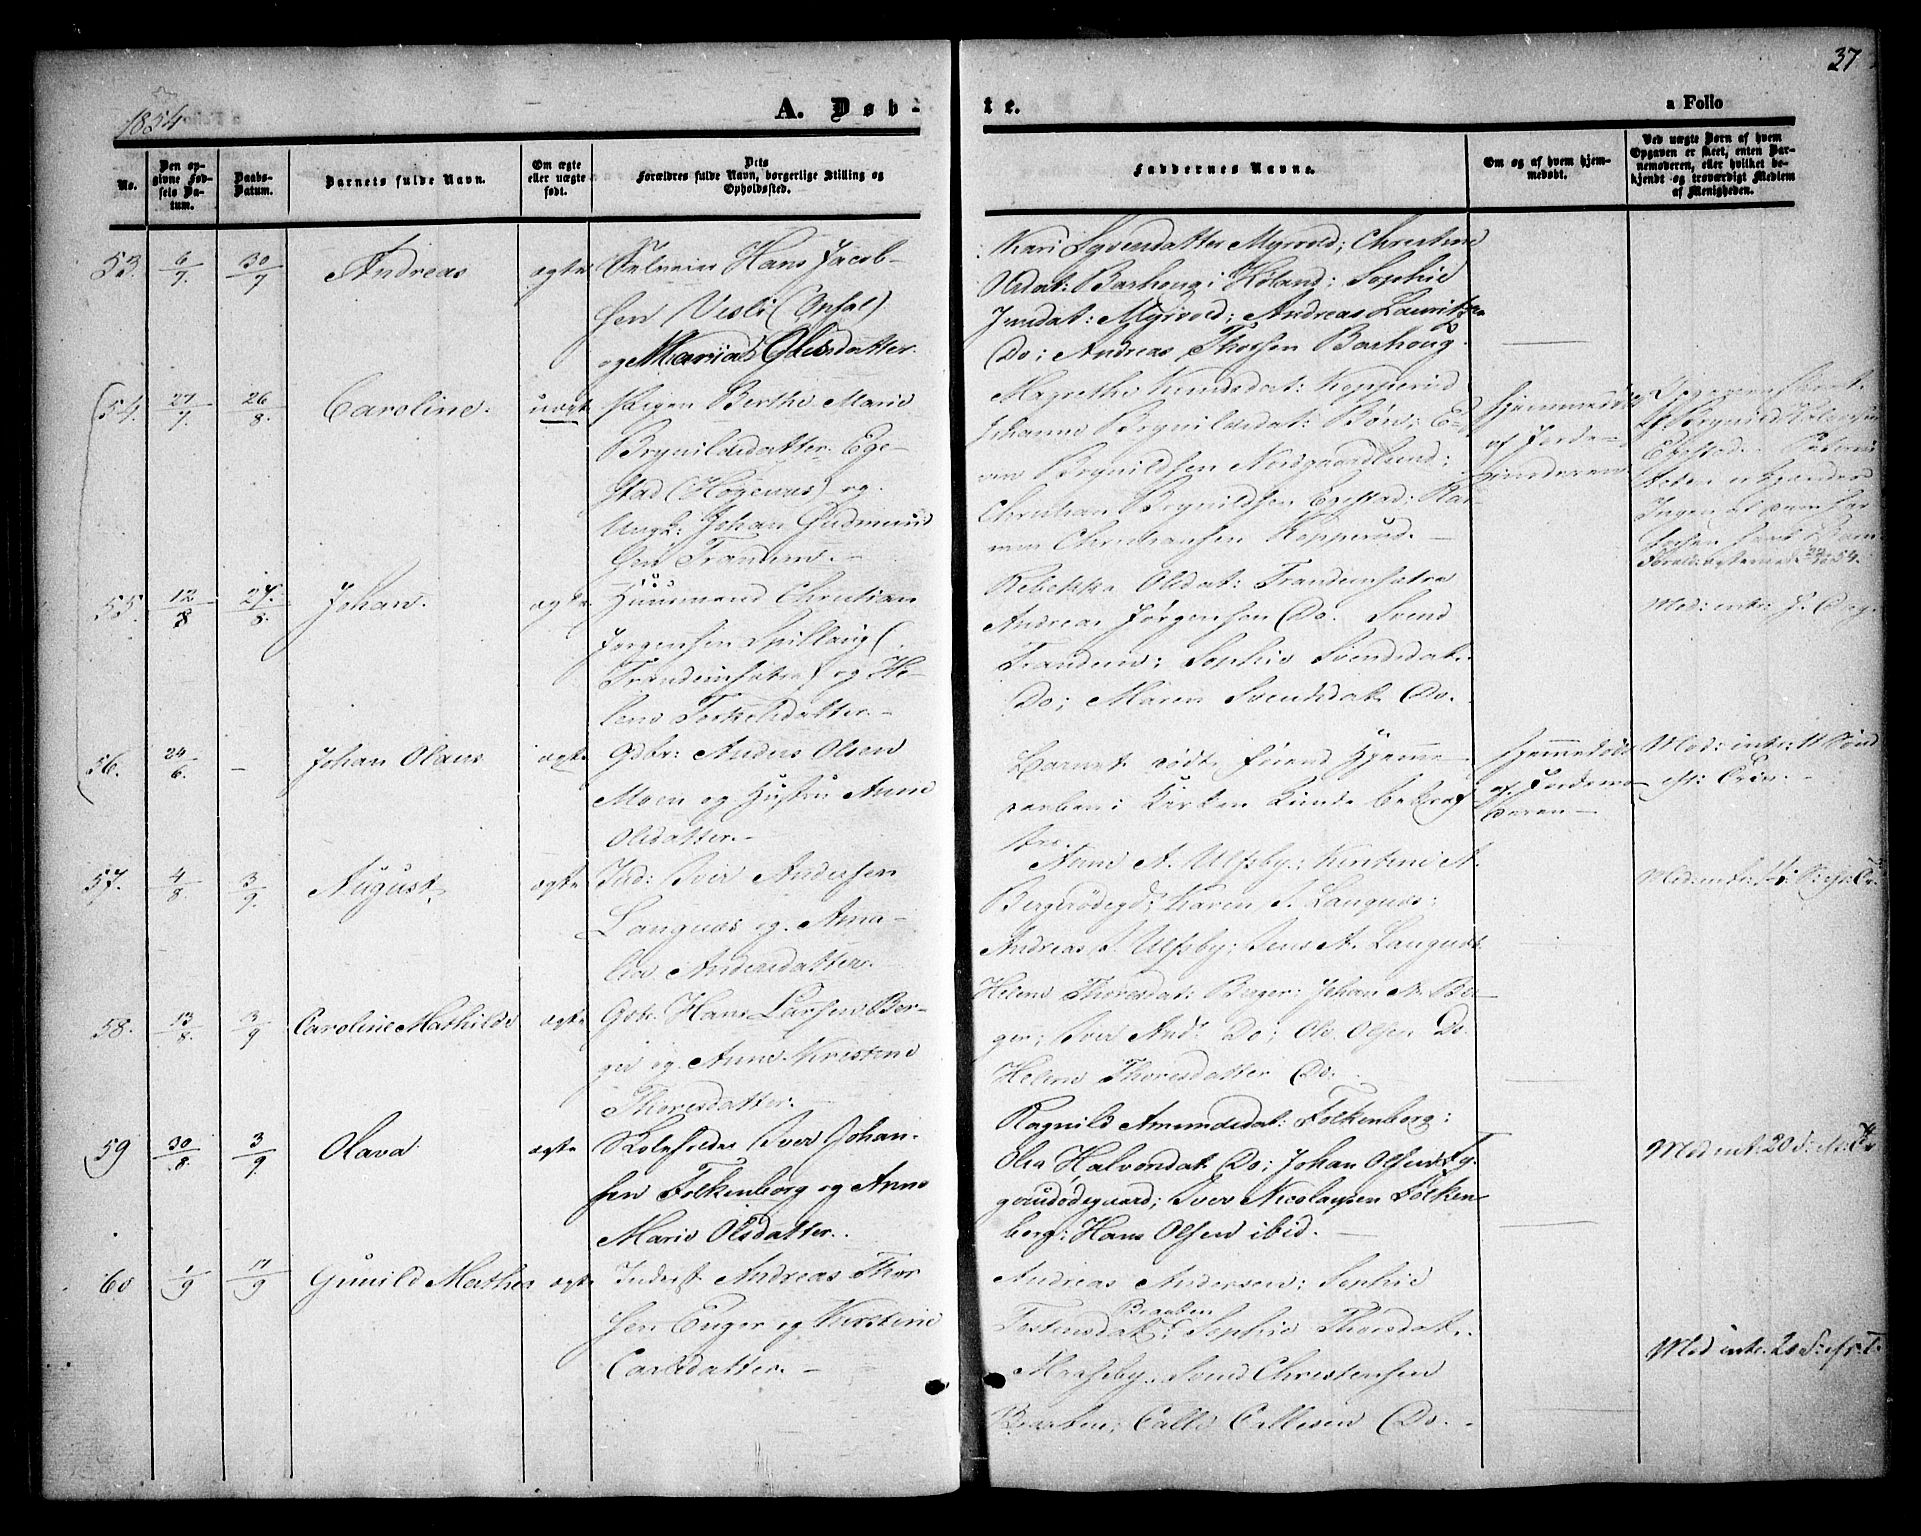 1854
A. Døb-
te.
a Folio
37
No.
Den op-
givne Fød-
sels Da-
tum.
Daabs-
Datum.
Barnets fulde Navn.
Om ægte
eller uægte
født.
Dets
Forældres fulde Navn, borgerlige Stilling og
Opholdssted.
Faddernes Navne.
Om og af hvem hjem-
medøbt.
Ved uægte Børn af hvem
Opgaven er skeet, enten Bar-
nemoderen, eller hvilket be-
kjendt og troværdigt Medlem
af Menigheden.
53. 6/7. 30/7 Andreas ægte Selveier Hans Jacob-
sen Visli (Opsal)
og Maria Olesdatter.
Kari Syversdatter Myrvold; Christine
Olsdat: Barhoug i Høland; Sophie
Jensdat: Myrvold; Andreas Lauritzen
Do; Andreas Thorsen Barhoug.
54. 27/7. 26/8. Caroline. uægte Pigen Berthe Marie
Brynildsdatter Ege-
stad (Høgenæs) og
Ungk: Johan Gudmund
sen Trandem. -
Magrethe Knudsdat: Kopperud
Johanne Brynildsdat: Børn;
Brynildsen Nordgaardlund;
Christian Brynildsen Egestad;
Christiansen Kopperud. -
Hjemmedøbt
af Jorde-
moderen.
Brynild
Egestad.
55. 12/8 27/8. Johan. ægte Huusmand Christian
Jørgensen Spillaug (
Trandemsætra) og He-
lene Torkelsdatter. -
Rebekka Olsdat: Trandemsætra
Andreas Jørgensen Do. Svend
Trandem; Sophie Svendsdat.
Do; Maren Svendsdat. Do.
56. 24/6. - Johan Olaus ægte Gdbr: Anders Olsen
Moen og Hustru Anne
Olsdatter. -
Barnet døde førend Hjemme-
daaben i Kirken kunde bekræf-
tes.
Hjemmedøbt
af Jordemo-
deren -
57. 4/8. 3/9. August. ægte Ind: Iver Andersen
Langnæs og Ama-
lia Andersdatter. -
Anne A. Ulfsby; Kirstine A.
Bergerødegd; Karen I. Langnæs;
Andreas S. Ulfsby; Jens A. Langnæs
58. 13/8. 3/9 Caroline Mathilde ægte Gdb. Hans Larsen Ber-
ger og Anne Kirstine
Thoresdatter. -
Helene Thoresdat: Berger; Johan A. Ber-
ger; Iver And: Do; Ole Olsen Do.
Helene Thoresdatter Do. -
59 30/8. 3/9 Olava ægte Selveier Iver Johan-
sen Folkenborg og Anne
Marie Olsdatter.
Ragnild Amundsdat: Folkenborg;
Elea Halvorsdat. Do; Johan Olsen Ly-
gerudødegaard; Iver Nicolaysen Folken-
borg; Hans Olsen ibid. -
60 1/9 17/9 Gunild Mathea ægte Inderst Andreas Thor
sen Enger og Kirstine
Carlsdatter. -
Andreas Andersen; Sophie
Tostensdat: Braaten Sophie Thorsdat.
Svend Christensen
Braaten; Calle Callesen Do. -